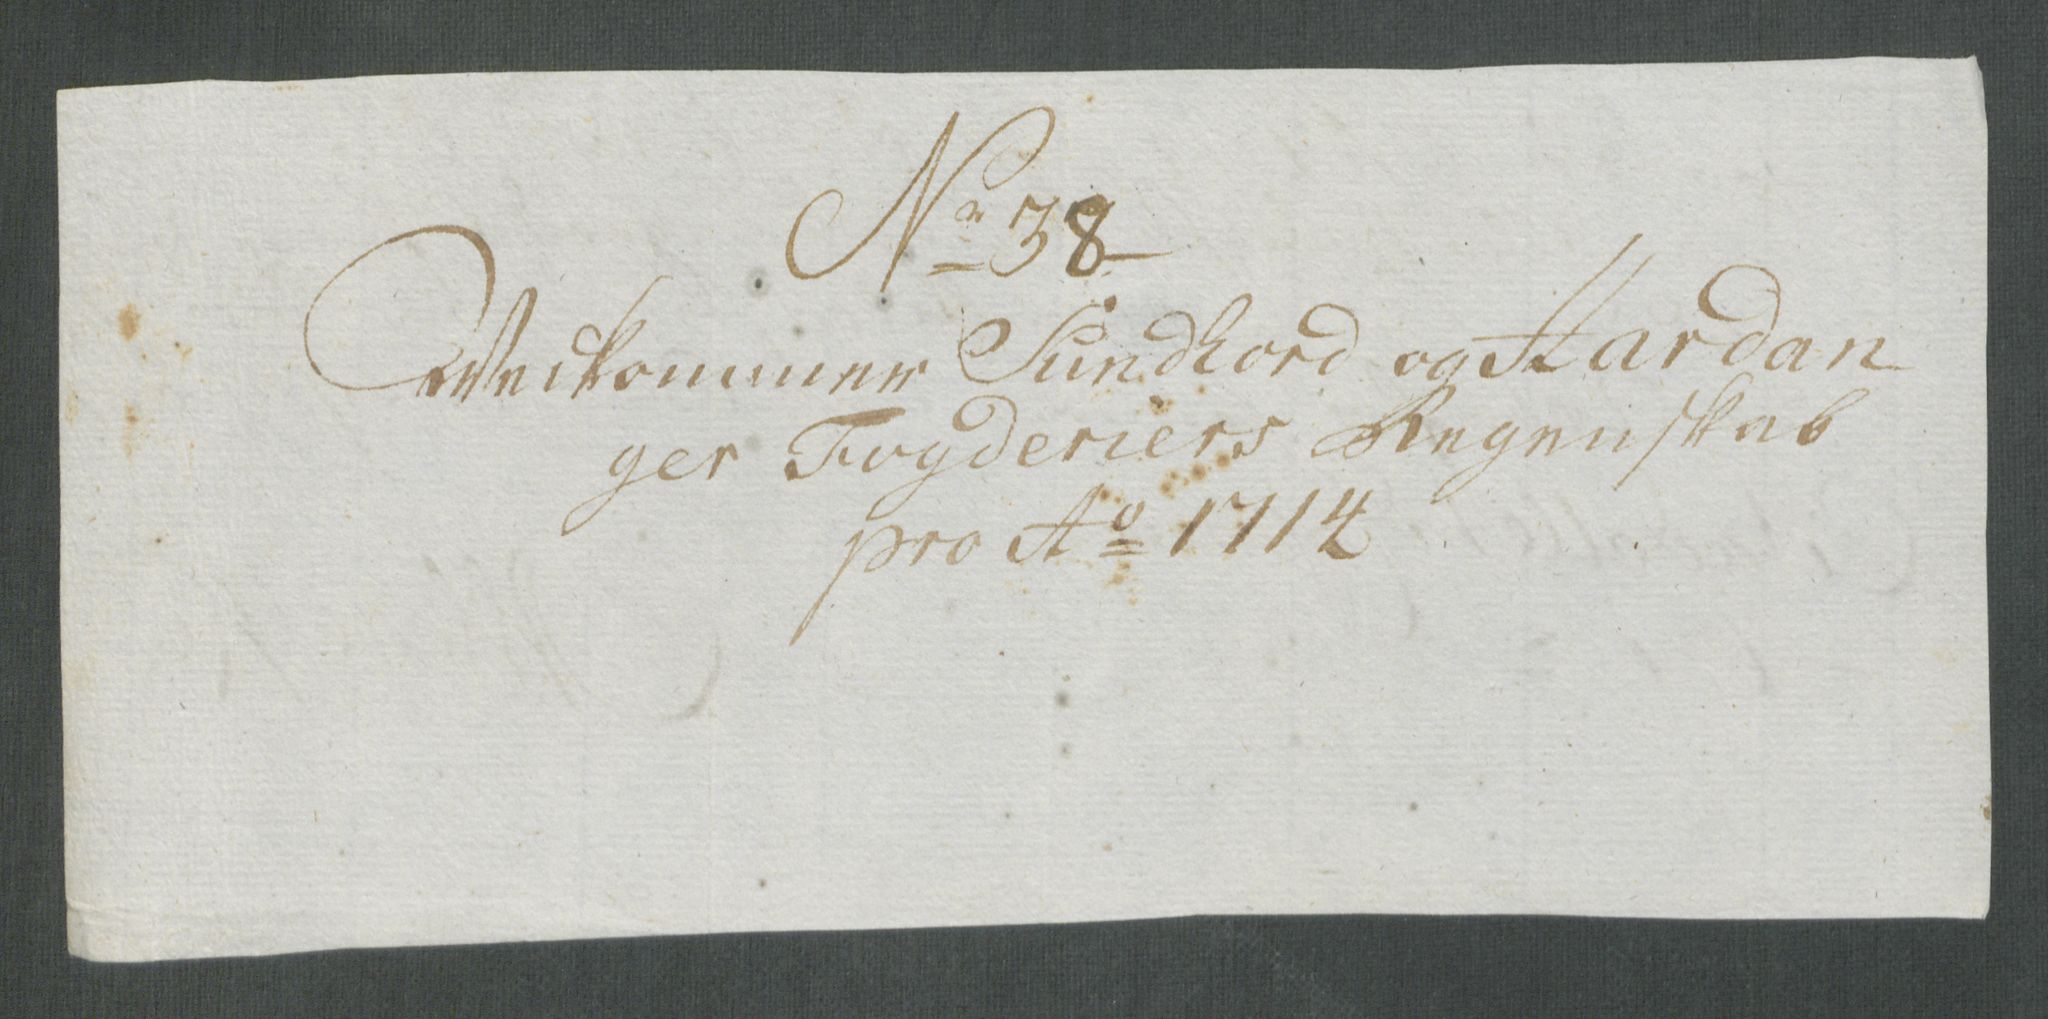 Nr 38
Vedkommer Sundhord og Hardan
ger Fogderiers Regenskab
pro Ao 1714